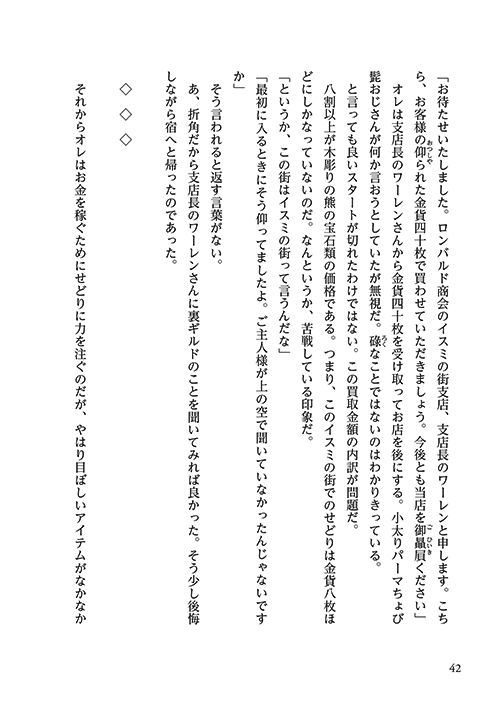 「お待たせいたしました。ロンバルド商会のイスミの街支店、支店長のワーレンと申します。こち
ら、お客様の仰られた金貨四十枚で買わせていただきましょう。今後とも当店を御贔屓ください」
オレは支店長のワーレンさんから金貨四十枚を受け取ってお店を後にする。小太りパーマちょび
髭おじさんが何か言おうとしていたが無視だ。碌なことではないのはわかりきっている。
と言っても良いスタートが切れたわけではない。この買取金額の内訳が問題だ。
八割以上が木彫りの熊の宝石類の価格である。つまり、このイスミの街でのせどりは金貨八枚ほ
どにしかなっていないのだ。なんというか、苦戦している印象だ。
「というか、この街はイスミの街って言うんだな」
「最初に入るときにそう仰ってましたよ。ご主人様が上の空で聞いていなかったんじゃないです
か」
そう言われると返す言葉がない。
あ、折角だから支店長のワーレンさんに裏ギルドのことを聞いてみれば良かった。そう少し後悔
しながら宿へと帰ったのであった。
◇ ◇ ◇
それからオレはお金を稼ぐためにせどりに力を注ぐのだが、やはり目ぼしいアイテムがなかなか
42